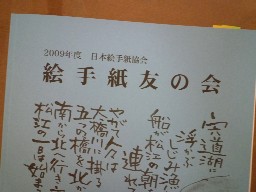 2009年度 日本絵手紙協会
絵手紙友の会
宍道湖に
浮ぶ
しじみ漁
船が松江の朝
連れて
やがて人は
大橋川に掛る
五つの橋を北か
南から北へ行き
松江の一日が始ま